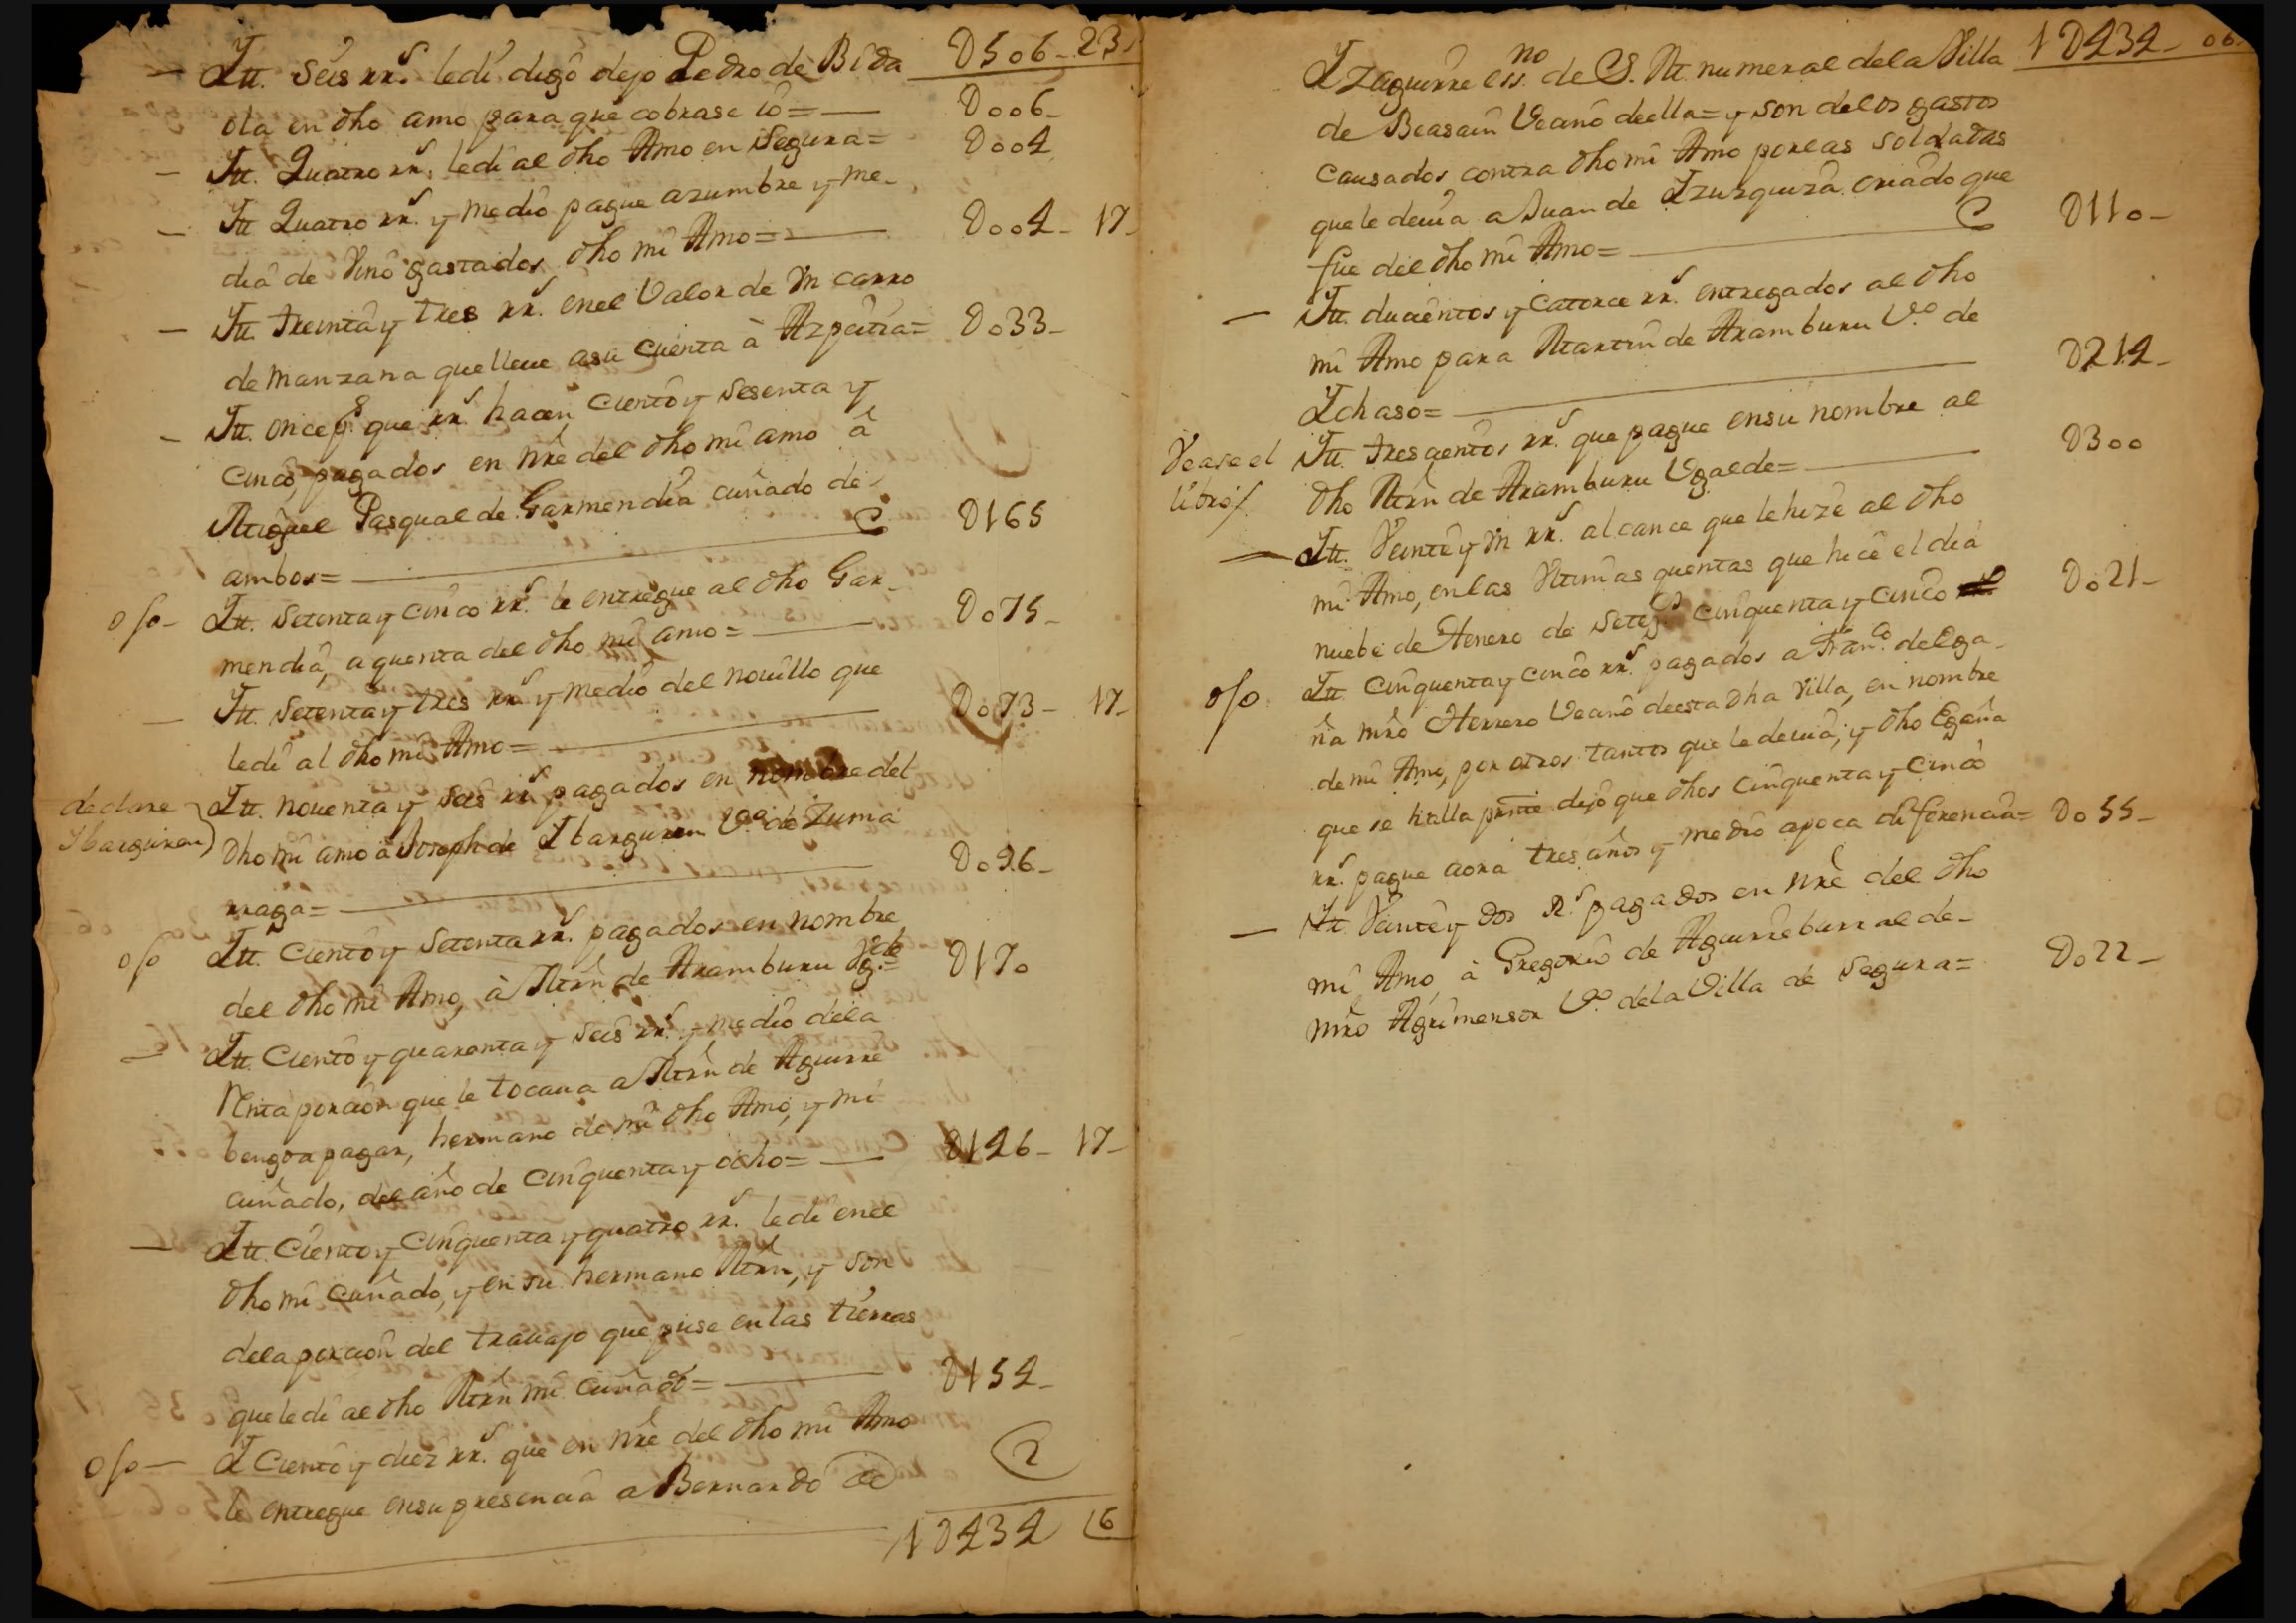 D506-23
Itt. Seis rr.s le di digo dejo Pedro de Bida
ola en dho amo para que cobrase io= D006-
Itt. Quatro rr.s le di al dho Amo en Segura= D004
Itt Quatro rr.s y medio pague azumbre y me-
dia de Vino gastados dho mi Amo= D004- 17-
Itt. treinta y tres rr.s en el Valor de Vn carro
de manzana que lleue a su cuenta à Azpeitia= D033-
Itt. once p.s que rr.s hacen ciento y sesenta y
cinco, pagados en nre del dho mi amo â
Miguel Pasqual de Garmendia cuñado de
ambos= D165
o/o- Itt. Setenta y cinco rr.s le entregue al dho Gar-
mendia, a quenta del dho mi amo= D075-
Itt. Setenta y tres rr.s y medio del nouillo que
le di al dho mi Amo= D073- 17-
declare
Ybarguren
Itt. nouenta y seis rr.s pagados en nombre del
dho mi amo à Joseph de Ibarguren V.o de Zuma
rraga= D096-
o/o Itt. Ciento y setenta rr.s pagados en nombre
del dho mi Amo, à Mrn de Aramburu Vg.de= D170
Itt. Ciento y quarenta y seis rr.s y medio dela
Renta porcion que le tocaua a Mrn de Aguirre
bengoa pagar, hermano de mi dho Amo, y mi
cuñado, del año de Cinquenta y ocho= D146- 17-
Itt. Ciento y Cinquenta y quatro rr.s le di en el
dho mi cuñado, y en su hermano Mrn, y son
dela porcion del trauajo que puse en las tierras
que le di al dho Mrn mi cuñado= D154-
o/o- It Ciento y diez rr.s que en nre del dho mi Amo
le entregue en su presencia a Bernardo de
2
1D434 16
1D434- 06
Izaguirre ess.no de S. M. numeral dela Villa
de Beasain Vecino de ella= y son delos gastos
Causados contra dho mi Amo por las soldadas
que le deuia a Juan de Izurquiza criado que
fue del dho mi Amo= D110-
Itt. ducientos y catorce rr.s entregados al dho
mi Amo para Martin de Aramburu V.o de
Ichaso= D214-
Vease el
libro/
Itt. trescientos rr.s que pague en su nombre al
dho Mrn de Aramburu Vgalde= D300
Itt. Veinte y Vn rr.s alcance que le hize al dho
mi Amo, en las Vltimas quentas que hice el dia
nuebe de Henero de Sete.s cinquenta y cinco D021-
o/o Itt. Cinquenta y cinco rr.s pagados a Fran.co de Ega-
ña mro Herrero Vecino de esta dha Villa, en nombre
de mi Amo, por otros tantos que le deuia; y dho Egaña
que se halla prnte dijo que dhos Cinquenta y Cinco
rr.s pague aora tres años y medio apoca diferencia= D055-
Itt. Veinte y dos R.s pagados en nre del dho
mi Amo à Gregorio de Aguirreburralde-
mro Agrimensor V.o dela Villa de Segura= D022-